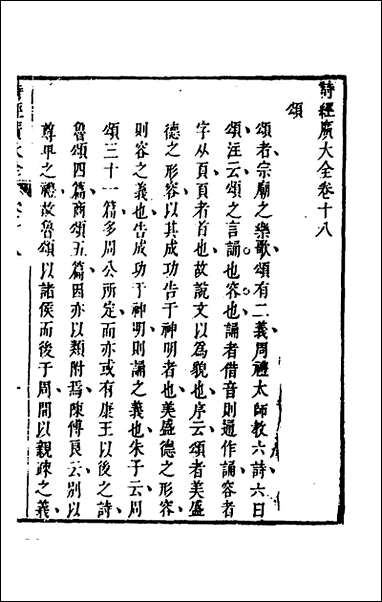 詩經廣大全卷十八
頌
頌者宗廟之樂歌頌有二義周禮太師教六詩六曰
頌注云頌之言誦也容也誦者借音則通作誦容者
字从頁頁者首也故說文以為貌也序云頌者美盛
德之形容以其成功告于神明者也美盛德之形容
則容之義也告成功于神明則誦之義也朱子云周
頌三十一篇多周公所定而亦或有康王以後之詩
魯頌四篇商頌五篇因亦以類附焉陳傅良云別以
尊卑之禮故魯頌以諸侯而後于周間以親疎之義
詩經廣大全